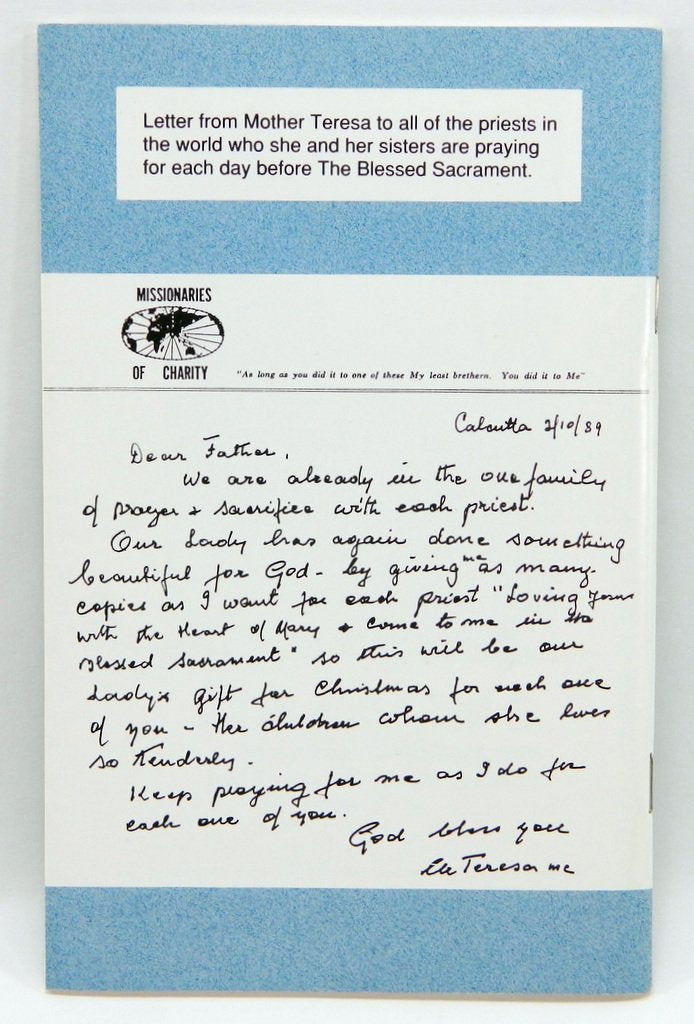 Letter from Mother Teresa to all of the priests in
the world who she and her sisters are praying
for each day before The Blessed Sacrament.
MISSIONARIES
OF CHARITY
"As long as you did it to one of these My least brethern. You did it to Me"
Calcutta 2/10/89
Dear Father,
We are already in the one family
of prayer & sacrifice with each priest.
Our Lady has again done something
beautiful for God - by giving me as many
copies as I want for each priest "Loving Jesus
with the Heart of Mary & Come to me in the
Blessed Sacrament" so this will be our
Lady's gift for Christmas for each one
of you - Her children whom she loves
so tenderly.
Keep praying for me as I do for
each one of you.
God bless you
Teresa mc